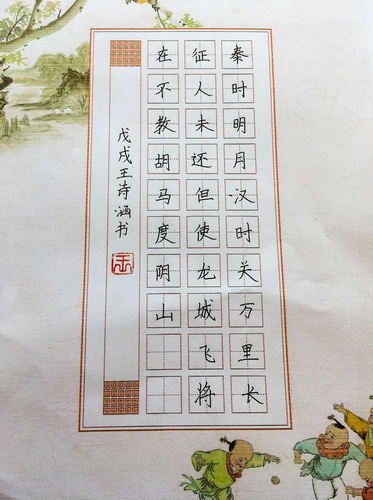 秦时明月汉时关万里长
征人未还但使龙城飞将
在不教胡马度阴山
戊戌王诗涵书
王